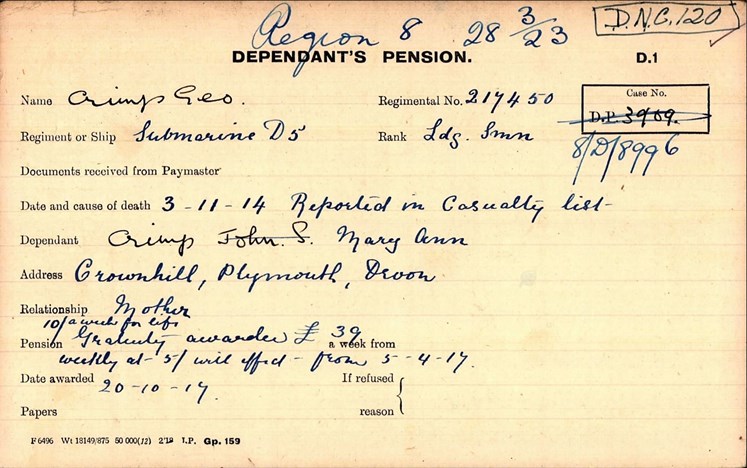 Region 8 28 3/23
D.N.C. 120
DEPENDANT'S PENSION. D.1
Name Crimp Geo. Regimental No. 217450
Case No.
D.P. 3969.
8/D/8996
Regiment or Ship Submarine D5 Rank Ldg. Smn
Documents received from Paymaster
Date and cause of death 3-11-14 Reported in Casualty list
Dependant Crimp John. S. Mary Ann
Address Crownhill, Plymouth, Devon
Relationship Mother
10/ a week for life
Pension Gratuity awarded £ 39 a week from
weekly at 5/ with effect from 5-4-17.
Date awarded 20-10-17 If refused
Papers reason
F6496 Wt 18149/875 50 000(12) 2/18 I.P. Gp. 159